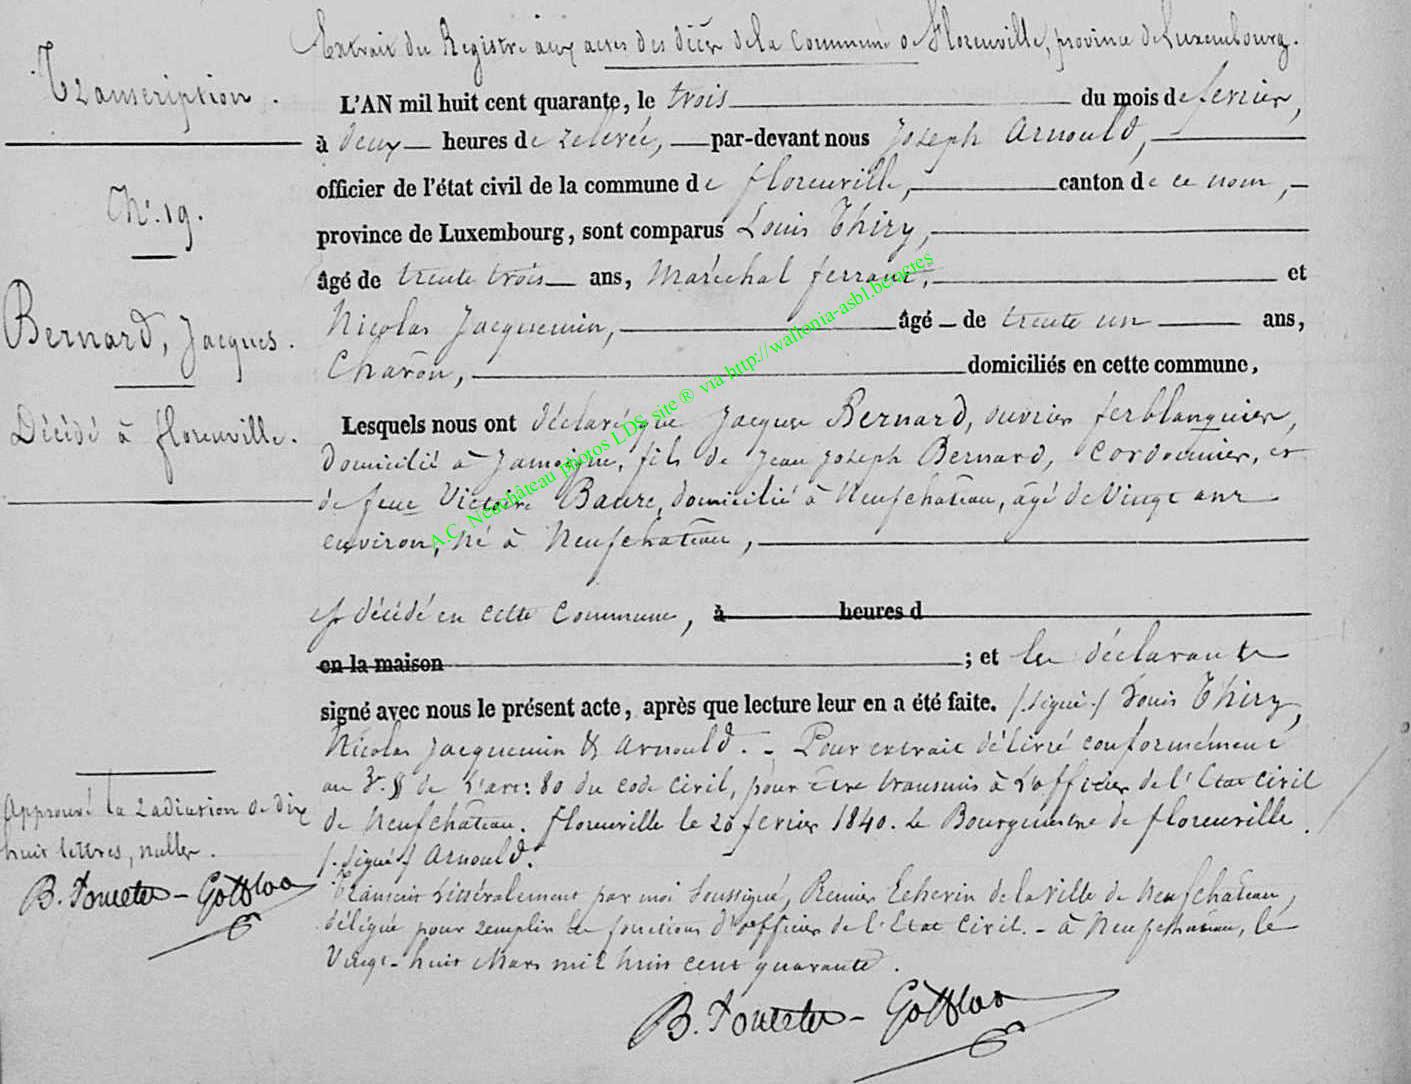 Extrait du Registre aux actes des décès de la Commune de Florenville, province de Luxembourg.
Transcription.
L'AN mil huit cent quarante, le trois du mois de fevrier,
à deux heures de relevée, par-devant nous Joseph Arnould,
officier de l'état civil de la commune de florenville, canton de ce nom,
province de Luxembourg, sont comparus Louis Thiry,
âgé de trente trois ans, Maréchal ferrant, et
Nicolas Jacquemin, âgé de trente un ans,
Charon, domiciliés en cette commune,
No. 19.
Bernard, Jacques.
Décédé à florenville.
Lesquels nous ont déclaré que Jacques Bernard, ouvrier ferblanquier,
domicilié à Jamoigne, fils de Jean Joseph Bernard, Cordonnier, et
de feue Victoire Baure, domicilié à Neufchateau, âgé de Vingt ans
environ, né à Neufchateau,
est décédé en cette Commune, à heures d
en la maison ; et les déclarants
signé avec nous le présent acte, après que lecture leur en a été faite. /.signé./ Louis Thiry,
Nicolas Jacquemin & Arnould. - Pour extrait délivré conformément
au 3e. § de l'art: 80 du code civil, pour être transmis à l'officier de l'Etat Civil
de Neufchateau. florenville le 20 fevrier 1840. Le Bourgmestre de florenville.
/.signé./ Arnould.
Transcrit littéralement par moi soussigné, Premier Echevin de la Ville de Neufchateau,
délégué pour remplir les fonctions d'officier de l'Etat Civil. - à Neufchateau, le
Vingt-huit Mars mil huit cent quarante.
Approuvé la radiation de dix
huit lettres, nulles.
A.C. Neufchâteau photos LDS site ® via http://wallonia-asbl.be/actes